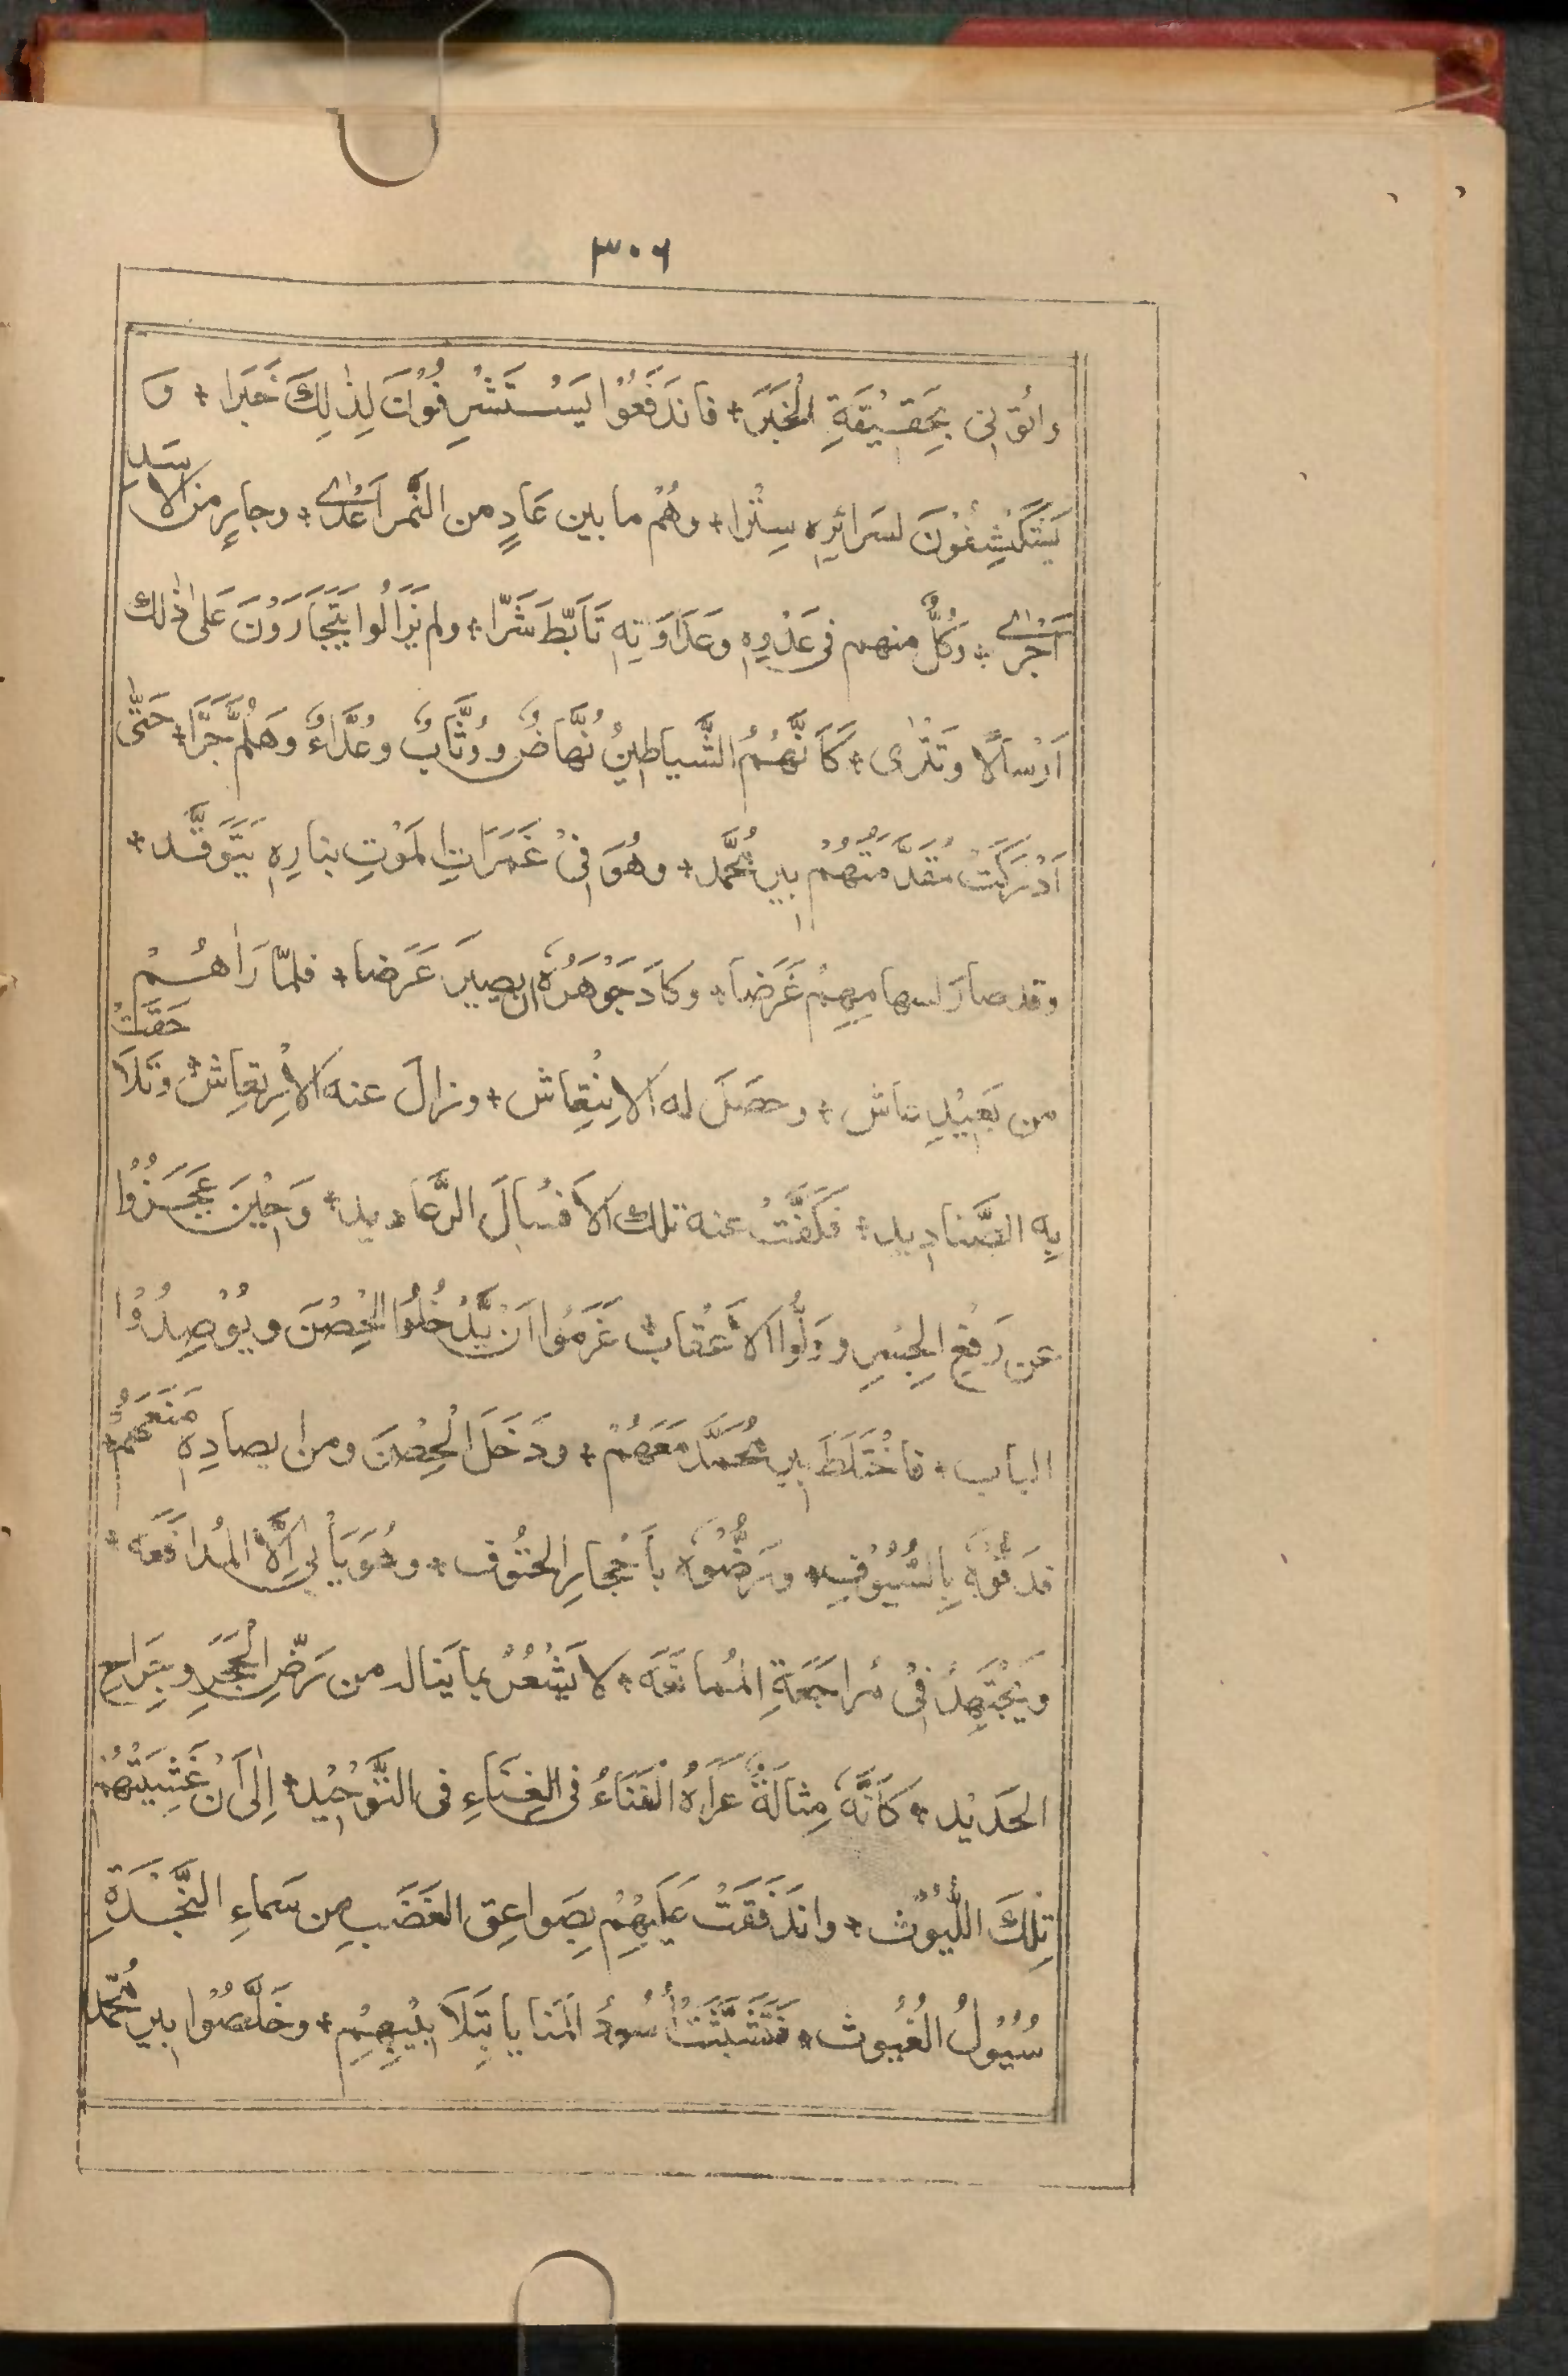 ٣٠٦
وائتوني بِحَقِيْقَةِ الْخَبَرِ + فاندَفَعُوْا يَسْتَشْرِفُوْنَ لِذٰلِكَ خَبَرا + وَ
يَسْتَكْشِفُوْنَ لسَرائِرِه سِتْرا + وهُمْ ما بين عَادٍ من النَّمر اَعْدٰى + وجارٍ من الاسَدِ
اَجْرٰى + وَكُلٌّ منهم فى عَدْوِهٖ وعَدَاوَتِهٖ تَاَبَّطَ شَرّا + ولم يَزَالُوا يَتَجَارَوْنَ عَلٰى ذٰلك
اَرْسَالًا وتَتْرٰى + كَاَنَّهُمُ الشَّياطِيْنُ نُهَّاضٌ ووُثَّابٌ وعُدَّاءٌ وهَلُمَّ جَرَّا + حَتّٰى
اَدْرَكَتْ مُقَدَّمَتُهُمْ بير مُحَمَّد + وهُوَ فِىْ غَمَرَاتِ المَوْتِ بنارِهٖ يَتَوَقَّد +
وقد صارَ لسهامِهِمْ غَرَضا + وكادَ جَوْهَرُهٗ ان يصِيرَ عَرَضا + فلمّا رَاٰهُمْ
من بَعِيْدٍ عاش + وحصَلَ له الاِنْتِعاش + وزالَ عنه الاِرْتِعاش + وتَلاحَقَتْ
بِهِ الصَّنادِيد + فَكَفَّتْ عنه تلك الاَفْسالَ الرَّعاديد + وَحِيْنَ عَجَزُوْا
عن رَفْعِ الجِسْرِ ووَلَّوا الاَعْقابَ عَزَمُوْا اَنْ يَّدْخُلُوْا الحِصْنَ ويُوْصِدُوْا
الباب + فاخْتَلَطَ بير مُحَمَّد مَعَهُمْ + ودَخَلَ الْحِصْنَ ومن ايصادِهٖ مَنَعَهُمْ +
فدَقُّوْهٗ بِالسُّيُوْفِ + ورَضُّوْهٗ بأَحْجارِ الحتُوف + وهُوَ يَأبٰى اِلَّا المُدافَعَه +
ويَجْتَهِدُ فِىْ مُراجَعَةِ المُمانَعَه + لا يَشْعُرُ بما يَناله من رَضِّ الْحَجَرِ وجِراحِ
الحَدِيْد + كَاَنَّهٗ مِثالَةٌ عَرَاهُ الْفَنَاءُ فى الفَنَاءِ فى التَّوْحِيْد + اِلٰى اَنْ غَشِيَتْهُمْ
تِلْكَ اللُّيُوْث + وانْدَفَقَتْ عَلَيْهِمْ بِصَواعِقِ الغَضَبِ من سَماءِ النَّجْدَةِ
سُيُوْلُ الغُيُوث + فَتَشَبَّثَتْ اُسُوْدُ المَنايا بِتَلابِيْبِهِمْ + وخَلَّصُوْا بير مُحَمَّد